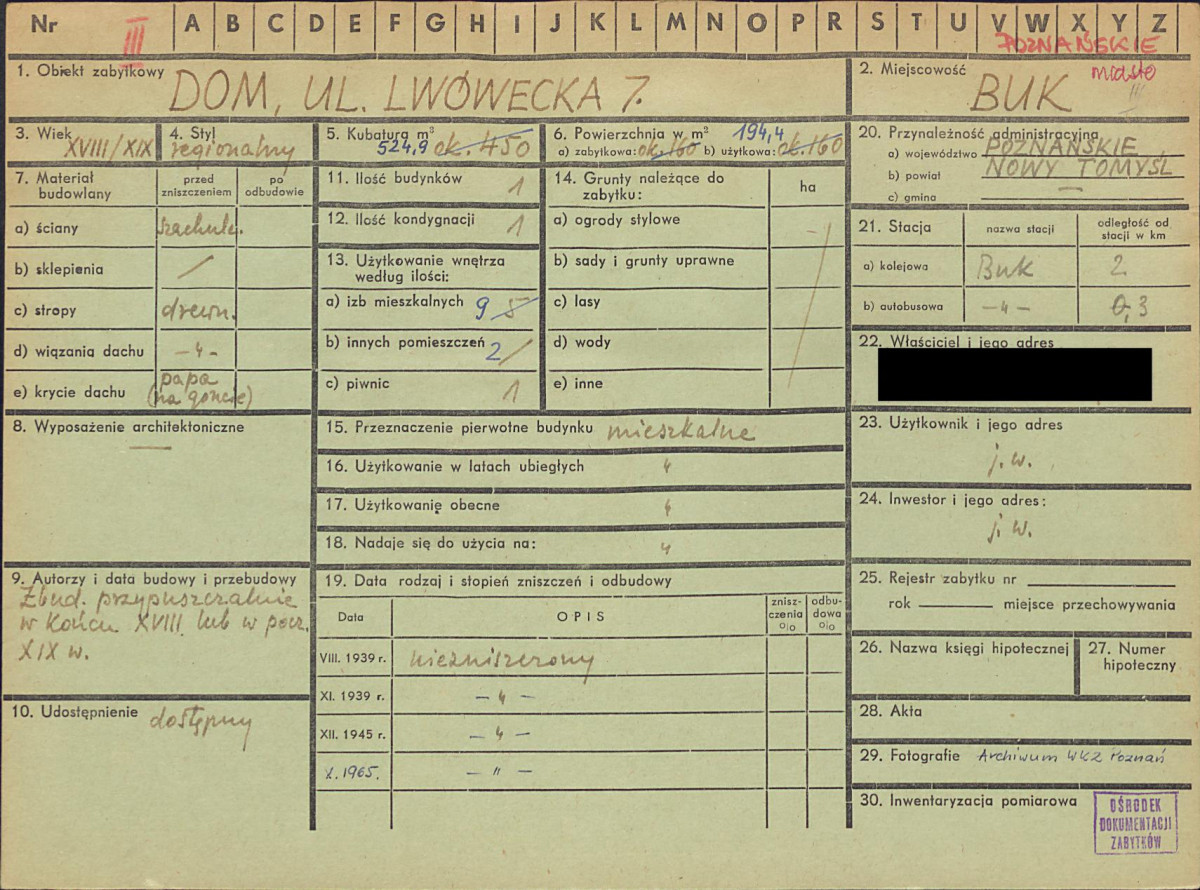 Nr III A B C D E F G H I J K L M N O P R S T U V W X Y Z
POZNAŃSKIE
1. Obiekt zabytkowy DOM, UL. LWÓWECKA 7.
2. Miejscowość miasto
BUK
3. Wiek XVIII/XIX
4. Styl regionalny
5. Kubatura m³ 524,9 ok. 450
6. Powierzchnia w m² 194,4
a) zabytkowa: ok. 160 b) użytkowa: ok. 160
20. Przynależność administracyjna
a) województwo POZNAŃSKIE
b) powiat NOWY TOMYŚL
c) gmina —
7. Materiał budowlany
przed zniszczeniem
po odbudowie
a) ściany szachulc.
b) sklepienia /
c) stropy drewn.
d) wiązania dachu — " —
e) krycie dachu papa (na goncie)
11. Ilość budynków 1
12. Ilość kondygnacji 1
13. Użytkowanie wnętrza
według ilości:
a) izb mieszkalnych 9 5
b) innych pomieszczeń 2 /
c) piwnic 1
14. Grunty należące do
zabytku:
ha
a) ogrody stylowe
b) sady i grunty uprawne
c) lasy
d) wody
e) inne
21. Stacja
nazwa stacji
odległość od stacji w km
a) kolejowa Buk 2
b) autobusowa — " — 0,3
22. Właściciel i jego adres
8. Wyposażenie architektoniczne
—
15. Przeznaczenie pierwotne budynku mieszkalne
16. Użytkowanie w latach ubiegłych "
17. Użytkowanie obecne "
18. Nadaje się do użycia na: "
23. Użytkownik i jego adres
j. w.
24. Inwestor i jego adres:
j. w.
9. Autorzy i data budowy i przebudowy
Zbud. przypuszczalnie
w końcu XVIII lub w pocz.
XIX w.
10. Udostępnienie dostępny
19. Data rodzaj i stopień zniszczeń i odbudowy
Data OPIS znisz-czenia o/o odbu-dowa o/o
VIII. 1939 r. niezniszczony
XI. 1939 r. — " —
XII. 1945 r. — " —
X. 1965. — " —
25. Rejestr zabytku nr
rok miejsce przechowywania
26. Nazwa księgi hipotecznej
27. Numer
hipoteczny
28. Akta
29. Fotografie Archiwum WKZ Poznań
30. Inwentaryzacja pomiarowa
OŚRODEK
DOKUMENTACJI
ZABYTKÓW